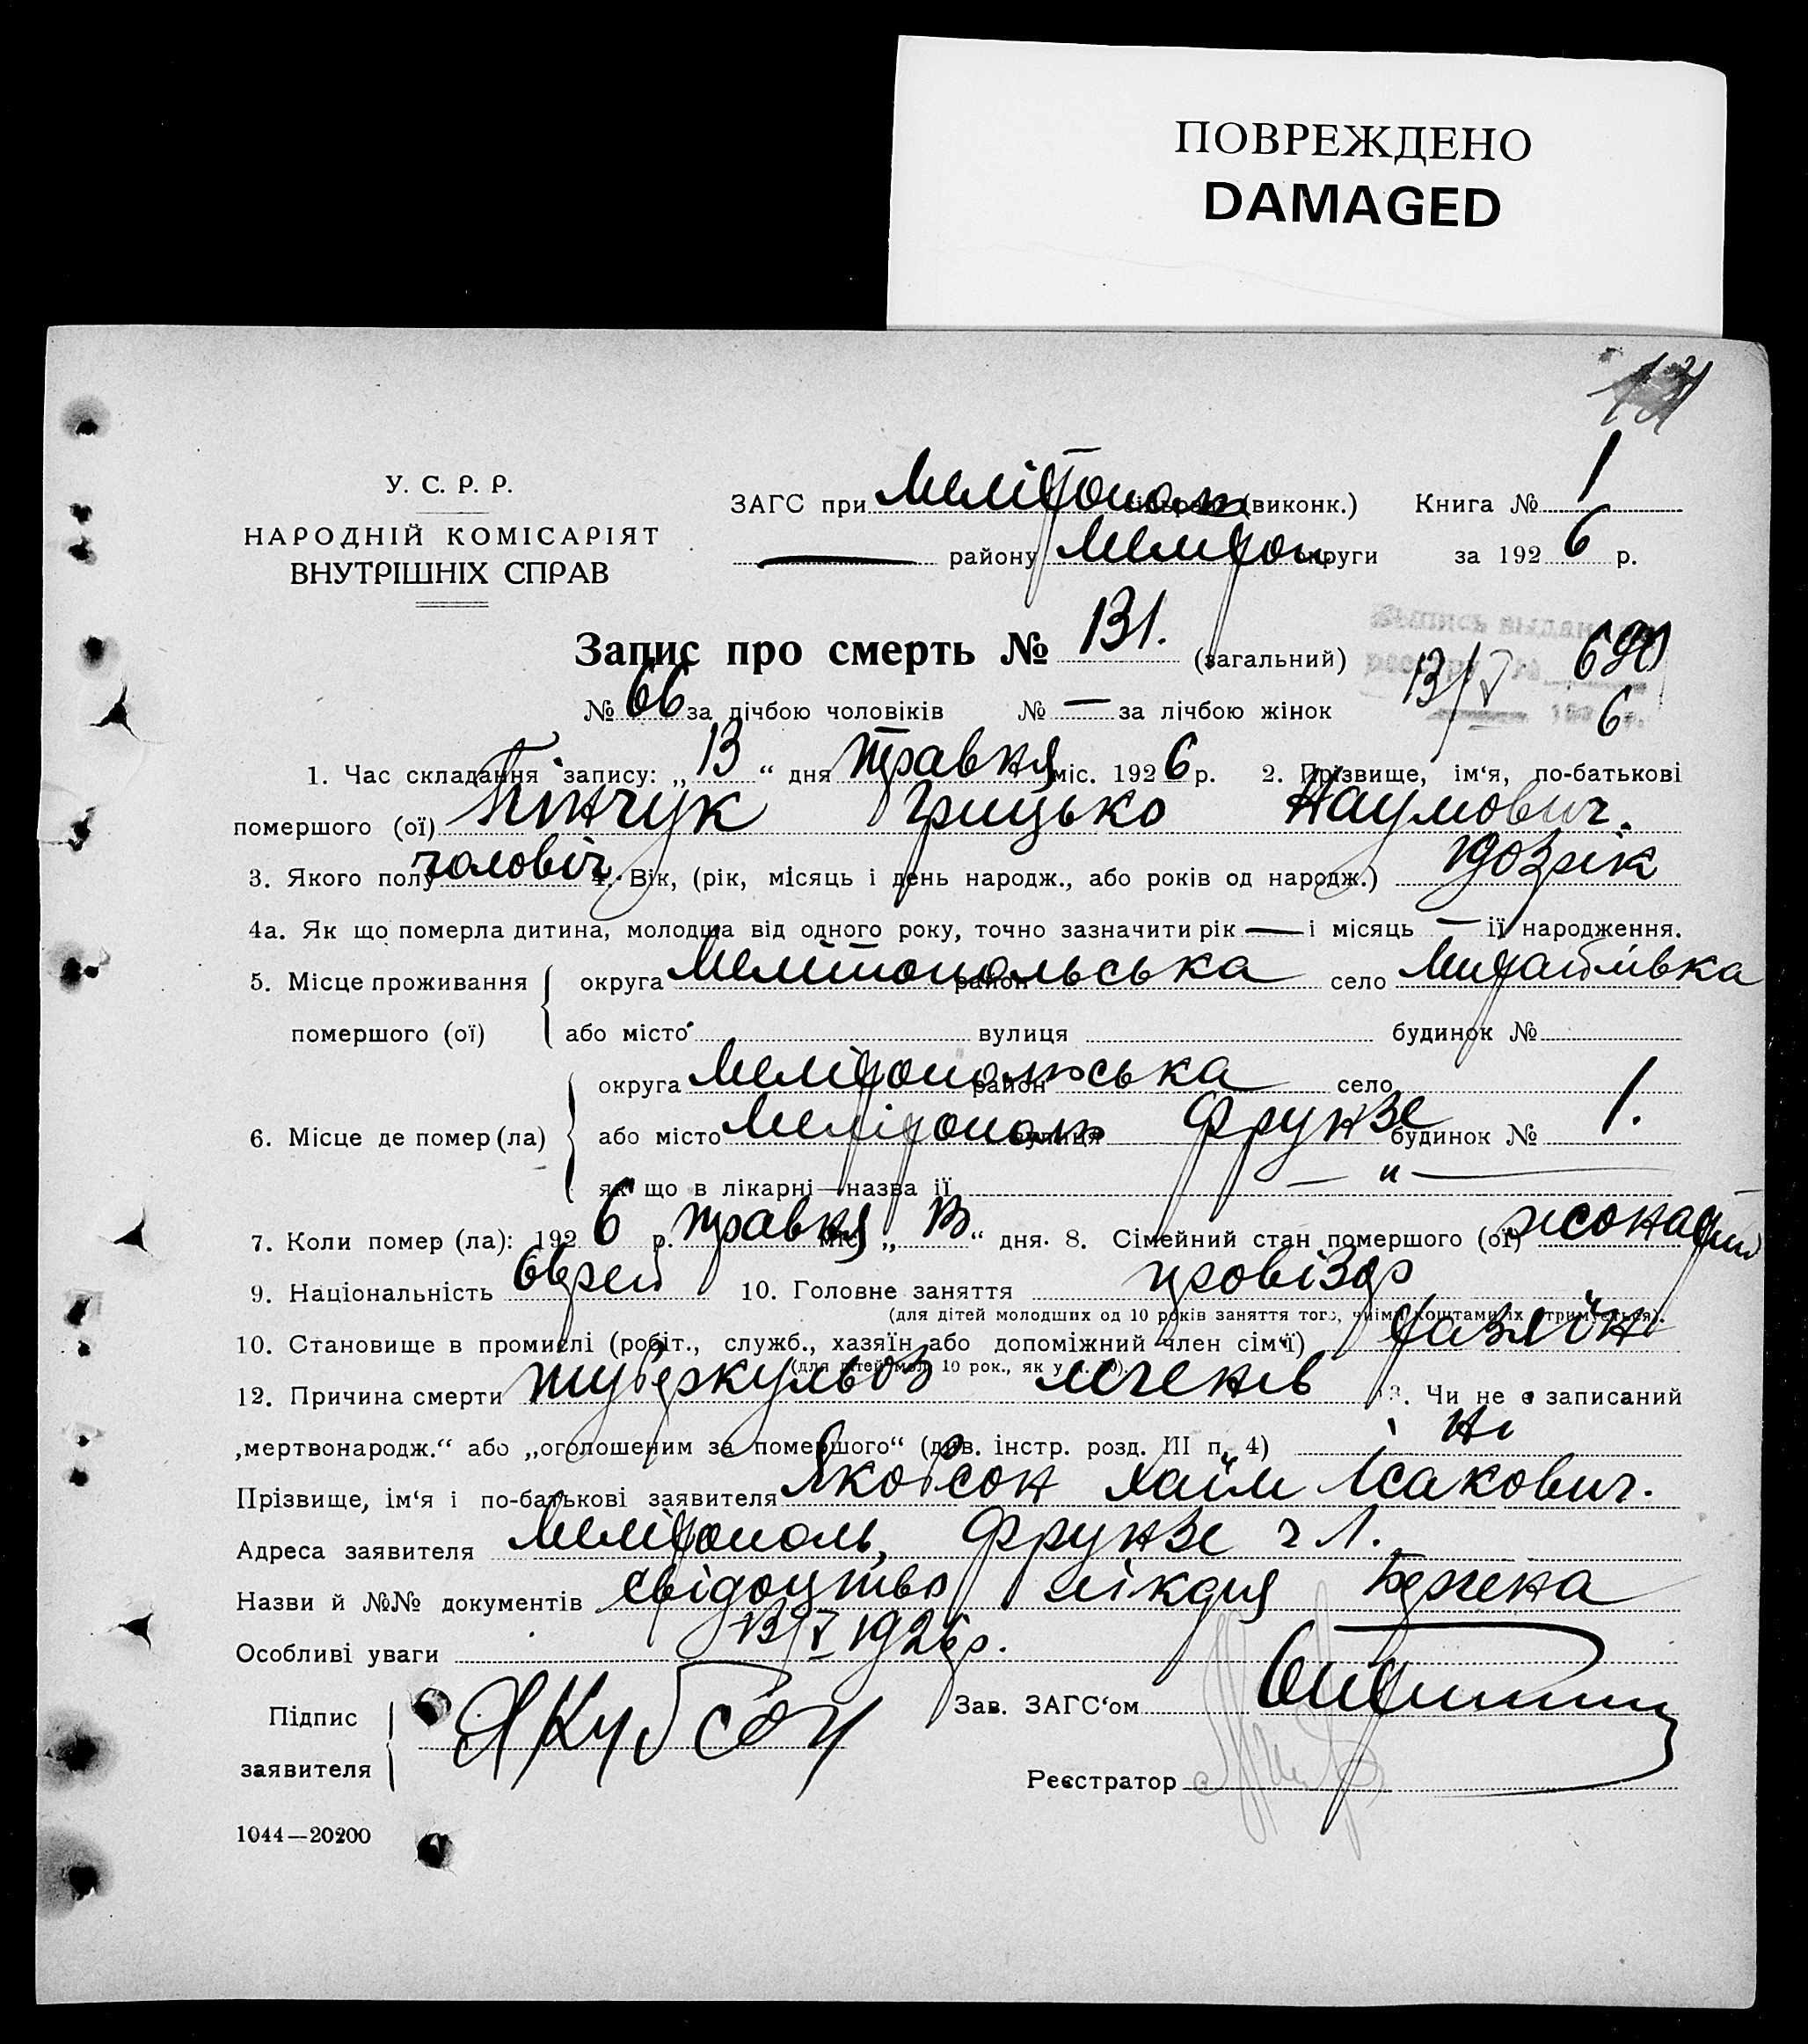 ПОВРЕЖДЕНО
DAMAGED
131
У. С. Р. Р.
НАРОДНІЙ КОМІСАРІЯТ
ВНУТРІШНІХ СПРАВ
ЗАГС при Мелітополь (виконк.) Книга № 1
— району Мелитоп округи за 1926 р.
Запис про смерть № 131. (загальний)
№ 66 за лічбою чоловіків № — за лічбою жінок
Выпись выдан
13/V 6
1. Час складання запису: „13“ дня травня міс. 1926 р. 2. Прізвище, ім‘я, по-батькові
помершого (ої) Грицько Наумович.
3. Якого полу чоловіч 4. Вік, (рік, місяць і день народж., або років од народж.)
4а. Як що померла дитина, молодша від одного року, точно зазначити рік — і місяць — її народження.
5. Місце проживання округа Мелітопольська район село
помершого (ої) або місто вулиця будинок №
округа Мелітопольська район село
6. Місце де помер (ла) або місто Мелітополь вулиця Фрунзе будинок № 1.
як що в лікарні—назва її — „ —
7. Коли помер (ла): 1926 р. травня міс. „13“ дня. 8. Сімейний стан помершого (ої) жонатий
9. Національність Єврей 10. Головне заняття провізор
(для дітей молодших од 10 років заняття того, чиїми коштами їх утримується).
10. Становище в промислі (робіт., служб., хазяїн або допоміжний член сім‘ї) хазяїн
(для дітей мол. 10 рок., як у
12. Причина смерти туберкульоз легенів 13. Чи не є записаний
„мертвонародж.“ або „оголошеним за померщого“ (див. інстр. розд. III п. 4) ні
Прізвище, ім‘я і по-батькові заявителя Якобсон Хаїм Ісакович.
Адреса заявителя Мелітополь, Фрунзе ч 1.
Назви й №№ документів свідоцтво лікаря
13/V 1926 р.
Особливі уваги
Підпис
заявителя
Якубсон
Зав. ЗАГС‘ом
Реєстратор
1044—20200